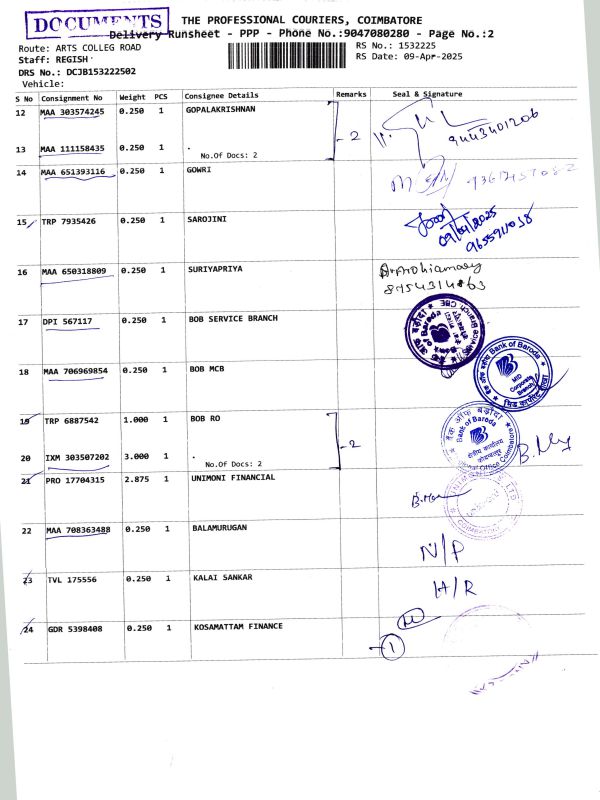 DOCUMENTS
THE PROFESSIONAL COURIERS, COIMBATORE
Delivery Runsheet - PPP - Phone No.:9047080280 - Page No.:2
Route: ARTS COLLEG ROAD
RS No.: 1532225
Staff: REGISH
RS Date: 09-Apr-2025
DRS No.: DCJB153222502
Vehicle:
S No Consignment No Weight PCS Consignee Details Remarks Seal & Signature
12 MAA 303574245 0.250 1 GOPALAKRISHNAN
9443401206
2
13 MAA 111158435 0.250 1 .
No.Of Docs: 2
14 MAA 651393116 0.250 1 GOWRI
15 TRP 7935426 0.250 1 SAROJINI
09/04/2025
9655911038
16 MAA 650318809 0.250 1 SURIYAPRIYA
17 DPI 567117 0.250 1 BOB SERVICE BRANCH
Bank of Baroda
18 MAA 706969854 0.250 1 BOB MCB
Bank of Baroda
MID Corporate Branch
19 TRP 6887542 1.000 1 BOB RO
Bank of Baroda
2
20 IXM 303507202 3.000 1 .
No.Of Docs: 2
21 PRO 17704315 2.875 1 UNIMONI FINANCIAL
22 MAA 708363488 0.250 1 BALAMURUGAN
N/P
23 TVL 175556 0.250 1 KALAI SANKAR
H/R
24 GDR 5398408 0.250 1 KOSAMATTAM FINANCE
1